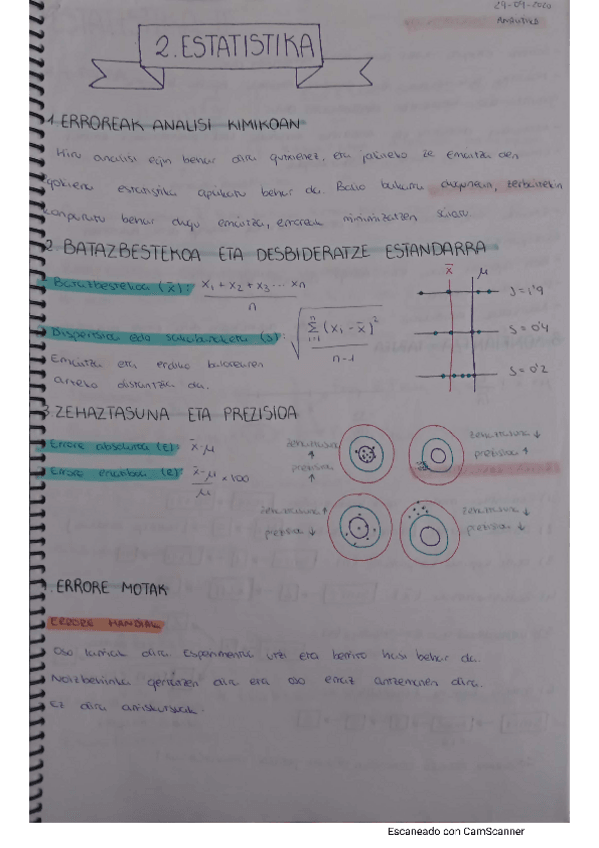 29-09-2020
ANALITIKO
2. ESTATISTIKA
1. ERROREAK ANALISI KIMIKOAN
Hiru analisi egin behar dira gutxienez, eta jakiteko ze emaitza den
egokiena estatistika aplikatu behar da. Balio bakarra daukagunean, zerbaitekin
konparatu behar dugu emaitza, erroreak minimizatzen saiatu.
2. BATAZBESTEKOA ETA DESBIDERATZE ESTANDARRA
Batazbestekoa (x̄): x₁ + x₂ + x₃ ... xn / n
Dispertsioa edo sakabanaketa (s): √ Σ (xi - x̄)² / n-1
n
i=1
Emaitza eta erdiko balioaren
arteko distantzia da.
x̄ μ
s = 1'9
s = 0'4
s = 0'2
3. ZEHAZTASUNA ETA PREZISIOA
Errore absolutua (E): x̄-μ
Errore erlatiboa (E): x̄-μ / μ × 100
zehaztasuna ↑
prezisioa ↑
zehaztasuna ↓
prezisioa ↑
zehaztasuna ↑
prezisioa ↓
zehaztasuna ↓
prezisioa ↓
4. ERRORE MOTAK
ERRORE HANDIAK
Oso larriak dira. Esperimentua utzi eta berriro hasi behar da.
Noizbehinka gertatzen dira eta oso erraz antzematen dira.
Ez dira
Escaneado con CamScanner